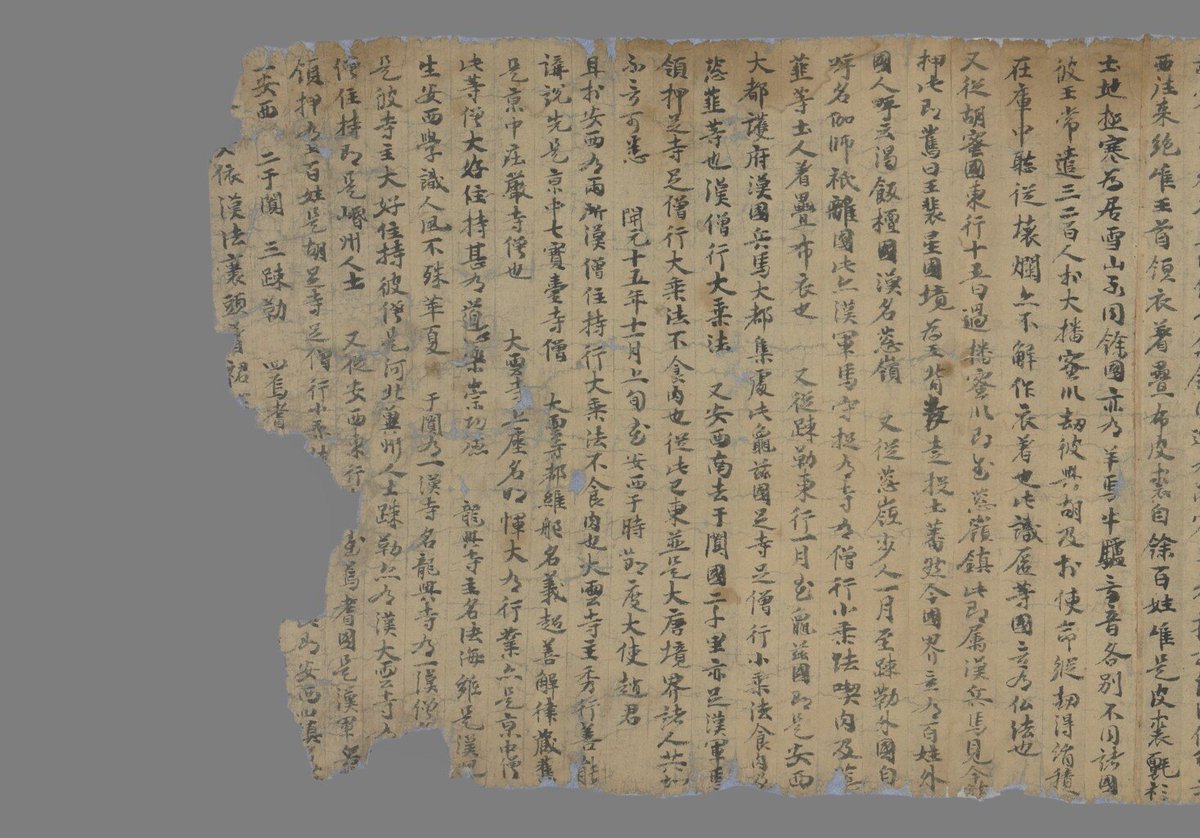 西法来絶唯王首領衣着疊布皮裘自餘百姓唯是皮裘氈衫
土地極寒為居雪山不同餘國亦有羊馬牛驢言音各別不同諸國
彼王常遣三二百人於大播蜜川劫彼興胡及於使命縱劫得絹積
在庫中聴從壊爛亦不解作衣着也此識匿等國無有仏法也
又從胡蜜國東行十五日過播蜜川即至葱嶺鎮此即属漢兵馬見今鎮
押此即舊日王裴星國境為王背叛走投土蕃然今國界無有百姓外
國人呼云渴飯檀國漢名葱嶺 又從葱嶺步入一月至疎勒外國自
呼名伽師祇離國此亦漢軍馬守捉有寺有僧行小乗法喫肉及葱
韮等土人着疊布衣也 又從疎勒東行一月至龜茲國即是安西
大都護府漢國兵馬大都集處此龜茲國足寺足僧行小乗法食肉及
葱韮等也漢僧行大乗法 又安西南去于闐國二千里亦足漢軍馬
領押足寺足僧行大乗法不食肉也從此已東並是大唐境界諸人共知
不言可悉 開元十五年十一月上旬至安西于時節度大使趙君
且於安西有兩所漢僧住持行大乗法不食肉也大雲寺主秀行善能
講說先是京中七寶臺寺僧 大雲寺都維那名義超善解律藏舊
是京中莊嚴寺僧也 大雲寺上座名明惲大有行業亦是京中僧
此等僧大好住持甚有道心樂崇功德 龍興寺主名法海雖是漢兒
生安西學識人風不殊華夏 于闐有一漢寺名龍興寺有一漢僧
是彼寺主大好住持彼僧是河北冀州人士疎勒亦有漢大雲寺有
僧住持即是崏州人士 又從安西東行 至焉耆國是漢軍兵
領押有王百姓是胡足寺足僧行小乗法 即安西四鎮
一安西 二于闐 三疎勒 四焉耆
依漢法裹頭着裙